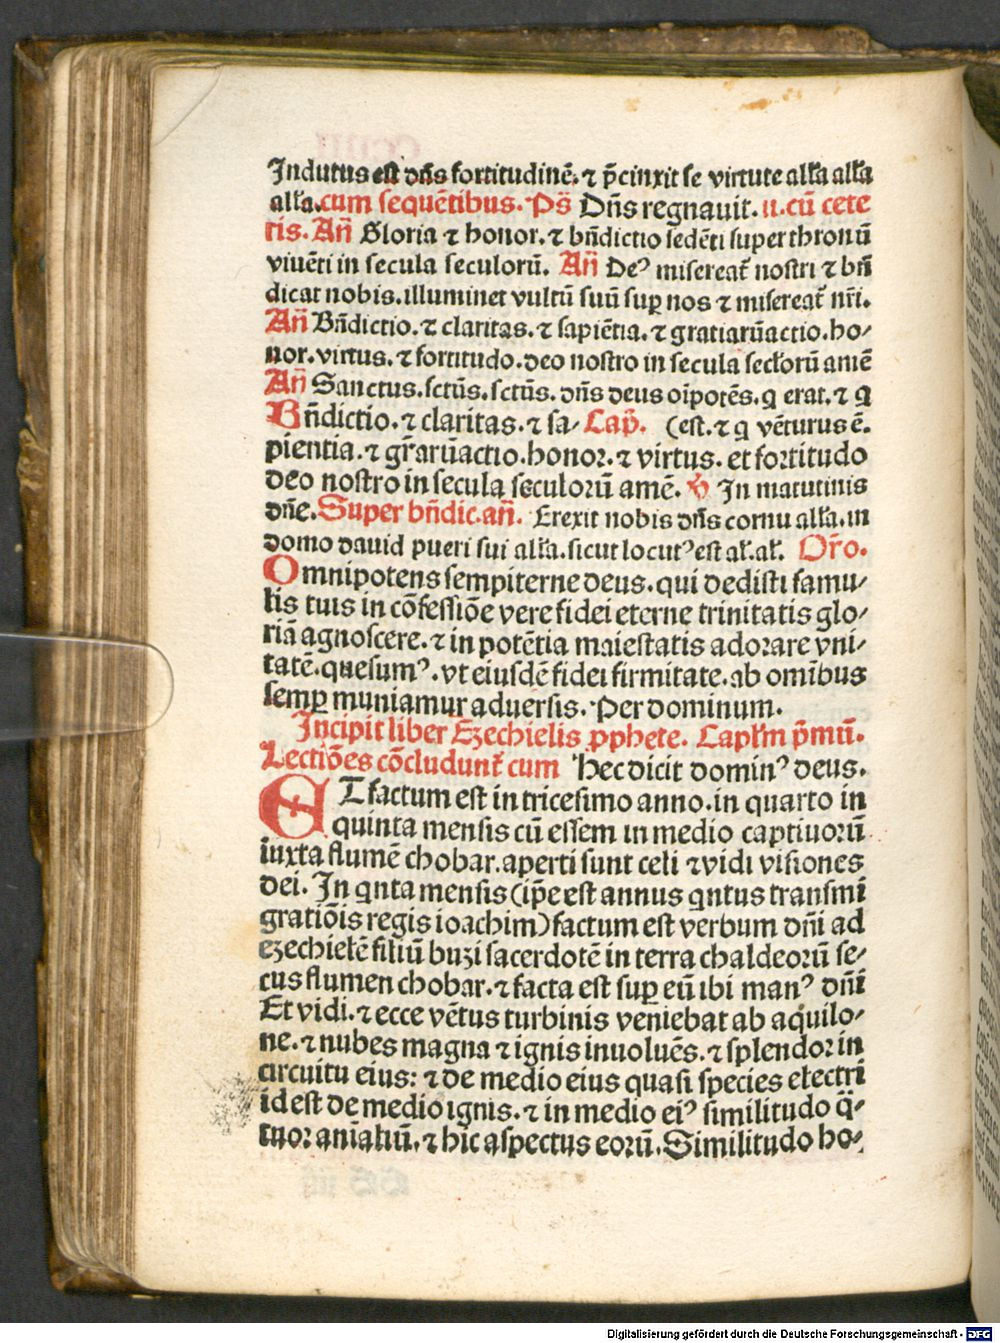 Indutus est dñs fortitudinē. ⁊ p̄cinxit se virtute alľa alľa
alľa. cum sequētibus. Ps̄ Dñs regnauit. ıı. cū cete
ris. Añ Gloria ⁊ honor. ⁊ bñdictio sedēti super thronū
viuēti in secula seculorū. Añ Deꝰ misereat᷑ nostri ⁊ bñ
dicat nobis. illuminet vultū suū suꝑ nos ⁊ misereat᷑ nr̄i.
Añ Bñdictio. ⁊ claritas. ⁊ sapiētia. ⁊ gratiarūactio. ho⸗
nor. virtus. ⁊ fortitudo. deo nostro in secula secľorū amē
Añ Sanctus. sctūs. sctūs. dñs deus oīpotēs. q erat. ⁊ q
Bñdictio. ⁊ claritas. ⁊ sa⸗ Cap̄. (est. ⁊ q vēturus ē.
pientia. ⁊ gr̄arūactio. honor. ⁊ virtus. et fortitudo
deo nostro in secula seculorū amē. ℣ In matutinis
dñe. Super bñdic. añ. Erexit nobis dñs cornu alľa. in
domo dauid pueri sui alľa. sicut locutꝰ est aľ. aľ. Or̄o.
Omnipotens sempiterne deus. qui dedisti famu⸗
lis tuis in cōfessiōe vere fidei eterne trinitatis glo⸗
riā agnoscere. ⁊ in potētia maiestatis adorare vni⸗
tatē. quesumꝰ. vt eiusdē fidei firmitate. ab omībus
semꝑ muniamur aduersis. Per dominum.
Incipit liber Ezechielis ꝓphete. Capľm p̄mū.
Lectiōes cōcludunt᷑ cum Hec dicit dominꝰ deus.
ET factum est in tricesimo anno. in quarto in
quinta mensis cū essem in medio captiuorū
iuxta flumē chobar. aperti sunt celi ⁊ vidi visiones
dei. In qnta mensis (ip̄e est annus qntus transmi
gratiōis regis ioachim) factum est verbum dñi ad
ezechielē filiū buzi sacerdotē in terra chaldeorū se⸗
cus flumen chobar. ⁊ facta est suꝑ eū ibi manꝰ dñi
Et vidi. ⁊ ecce vētus turbinis veniebat ab aquilo⸗
ne. ⁊ nubes magna ⁊ ignis inuoluēs. ⁊ splendor in
circuitu eius: ⁊ de medio eius quasi species electri
id est de medio ignis. ⁊ in medio eiꝰ similitudo q̄⸗
tuor anīaliū. ⁊ hic aspectus eorū. Similitudo ho⸗
Digitalisierung gefördert durch die Deutsche Forschungsgemeinschaft - DFG